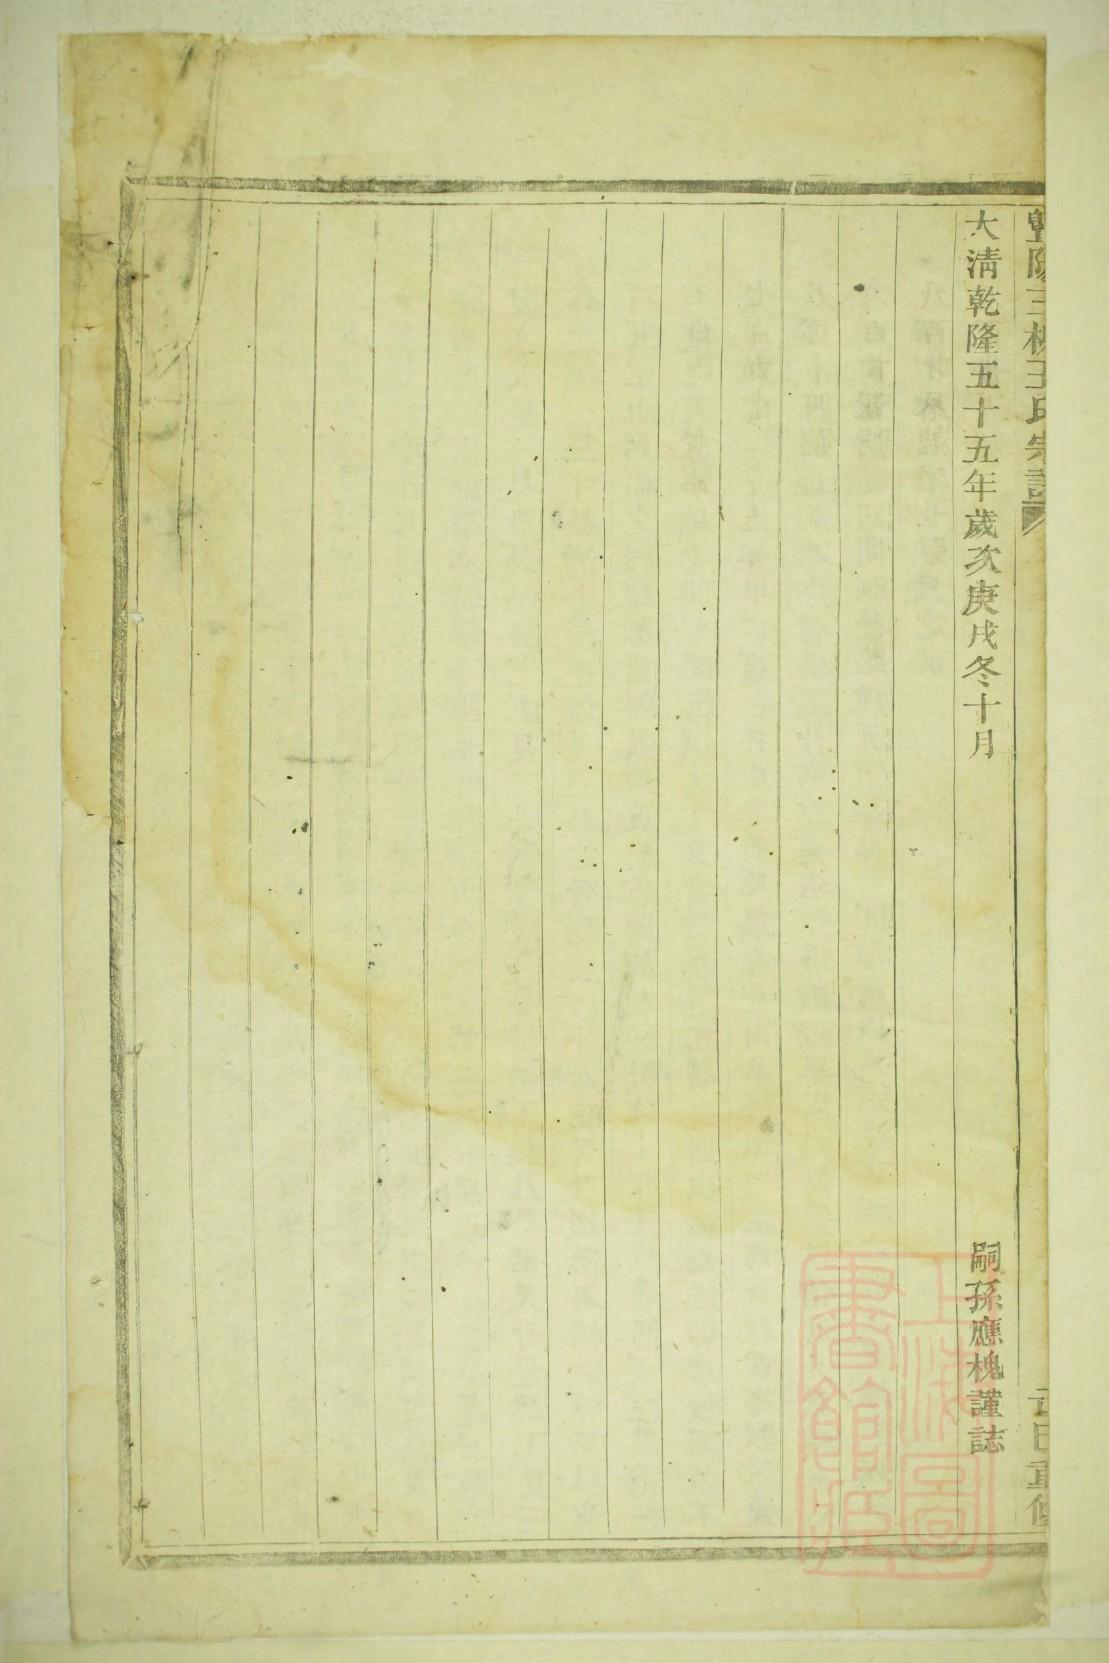 暨陽三槐王氏宗譜
大淸乾隆五十五年歲次庚戌冬十月
嗣孫應槐謹誌
重修
上海圖書館藏